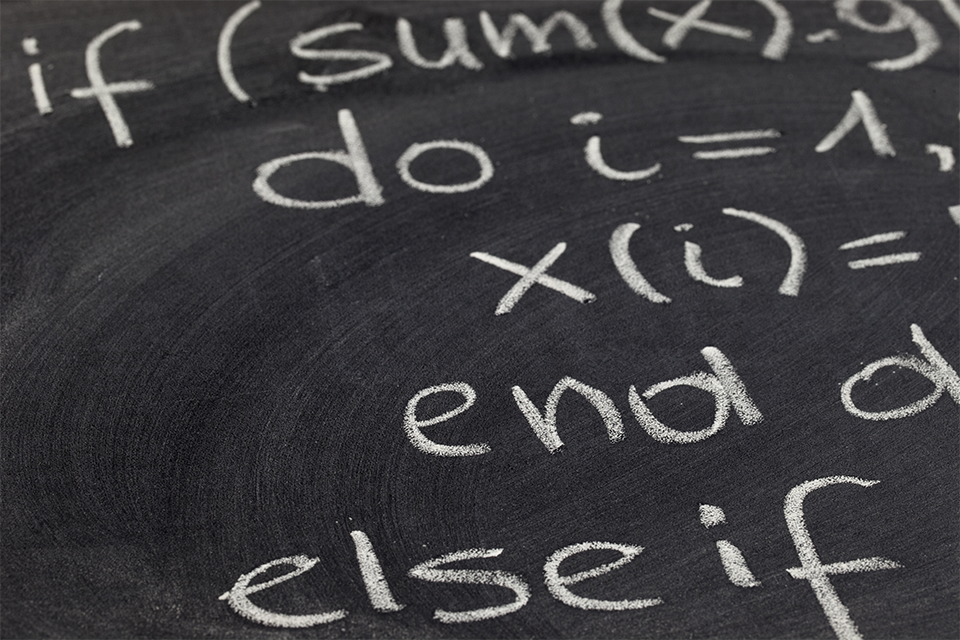 if (sum(x).g
do i = 1,
x(i) =
end d
else if